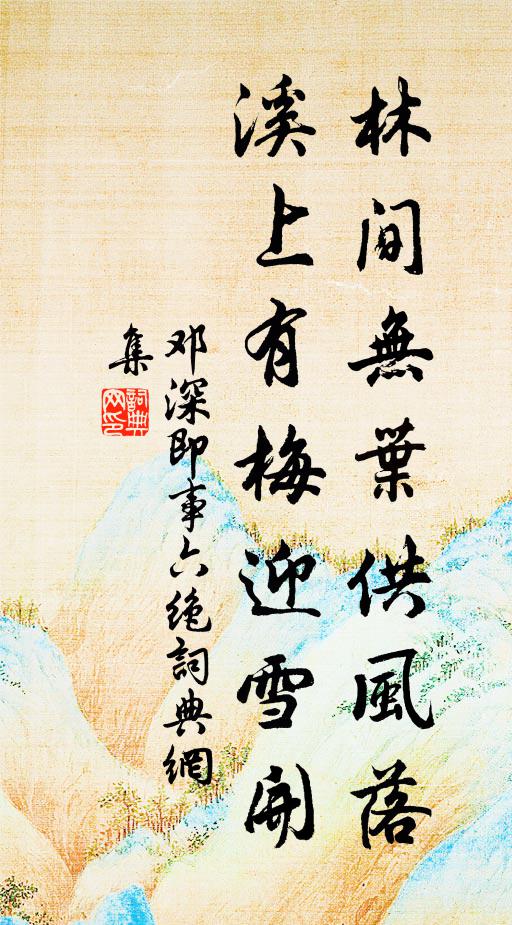 林間無葉供風落
溪上有梅迎雪開
邓深即事六绝詞典網
集
詞典
网印